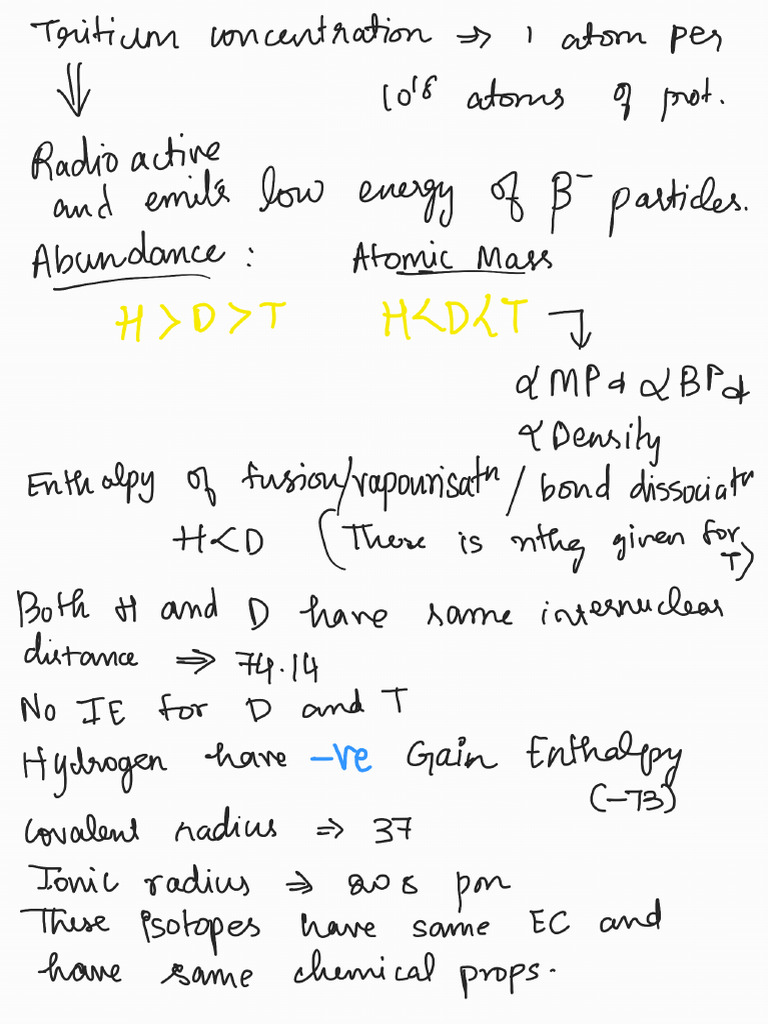 Tritium concentration ⇒ 1 atom per
10¹⁸ atoms of prot.
⇓
Radioactive
and emits low energy of β⁻ particles.
Abundance : Atomic Mass
H > D > T H < D < T
∝ MP & ∝ BP &
∝ Density
Enthalpy of fusion/vapourisatⁿ / bond dissociatⁿ
H < D (There is nthg given for
T)
Both H and D have same internuclear
distance ⇒ 74.14
No IE for D and T
Hydrogen have -ve Gain Enthalpy
(-73)
Covalent radius ⇒ 37
Ionic radius ⇒ 208 pm
These isotopes have same EC and
have same chemical props.